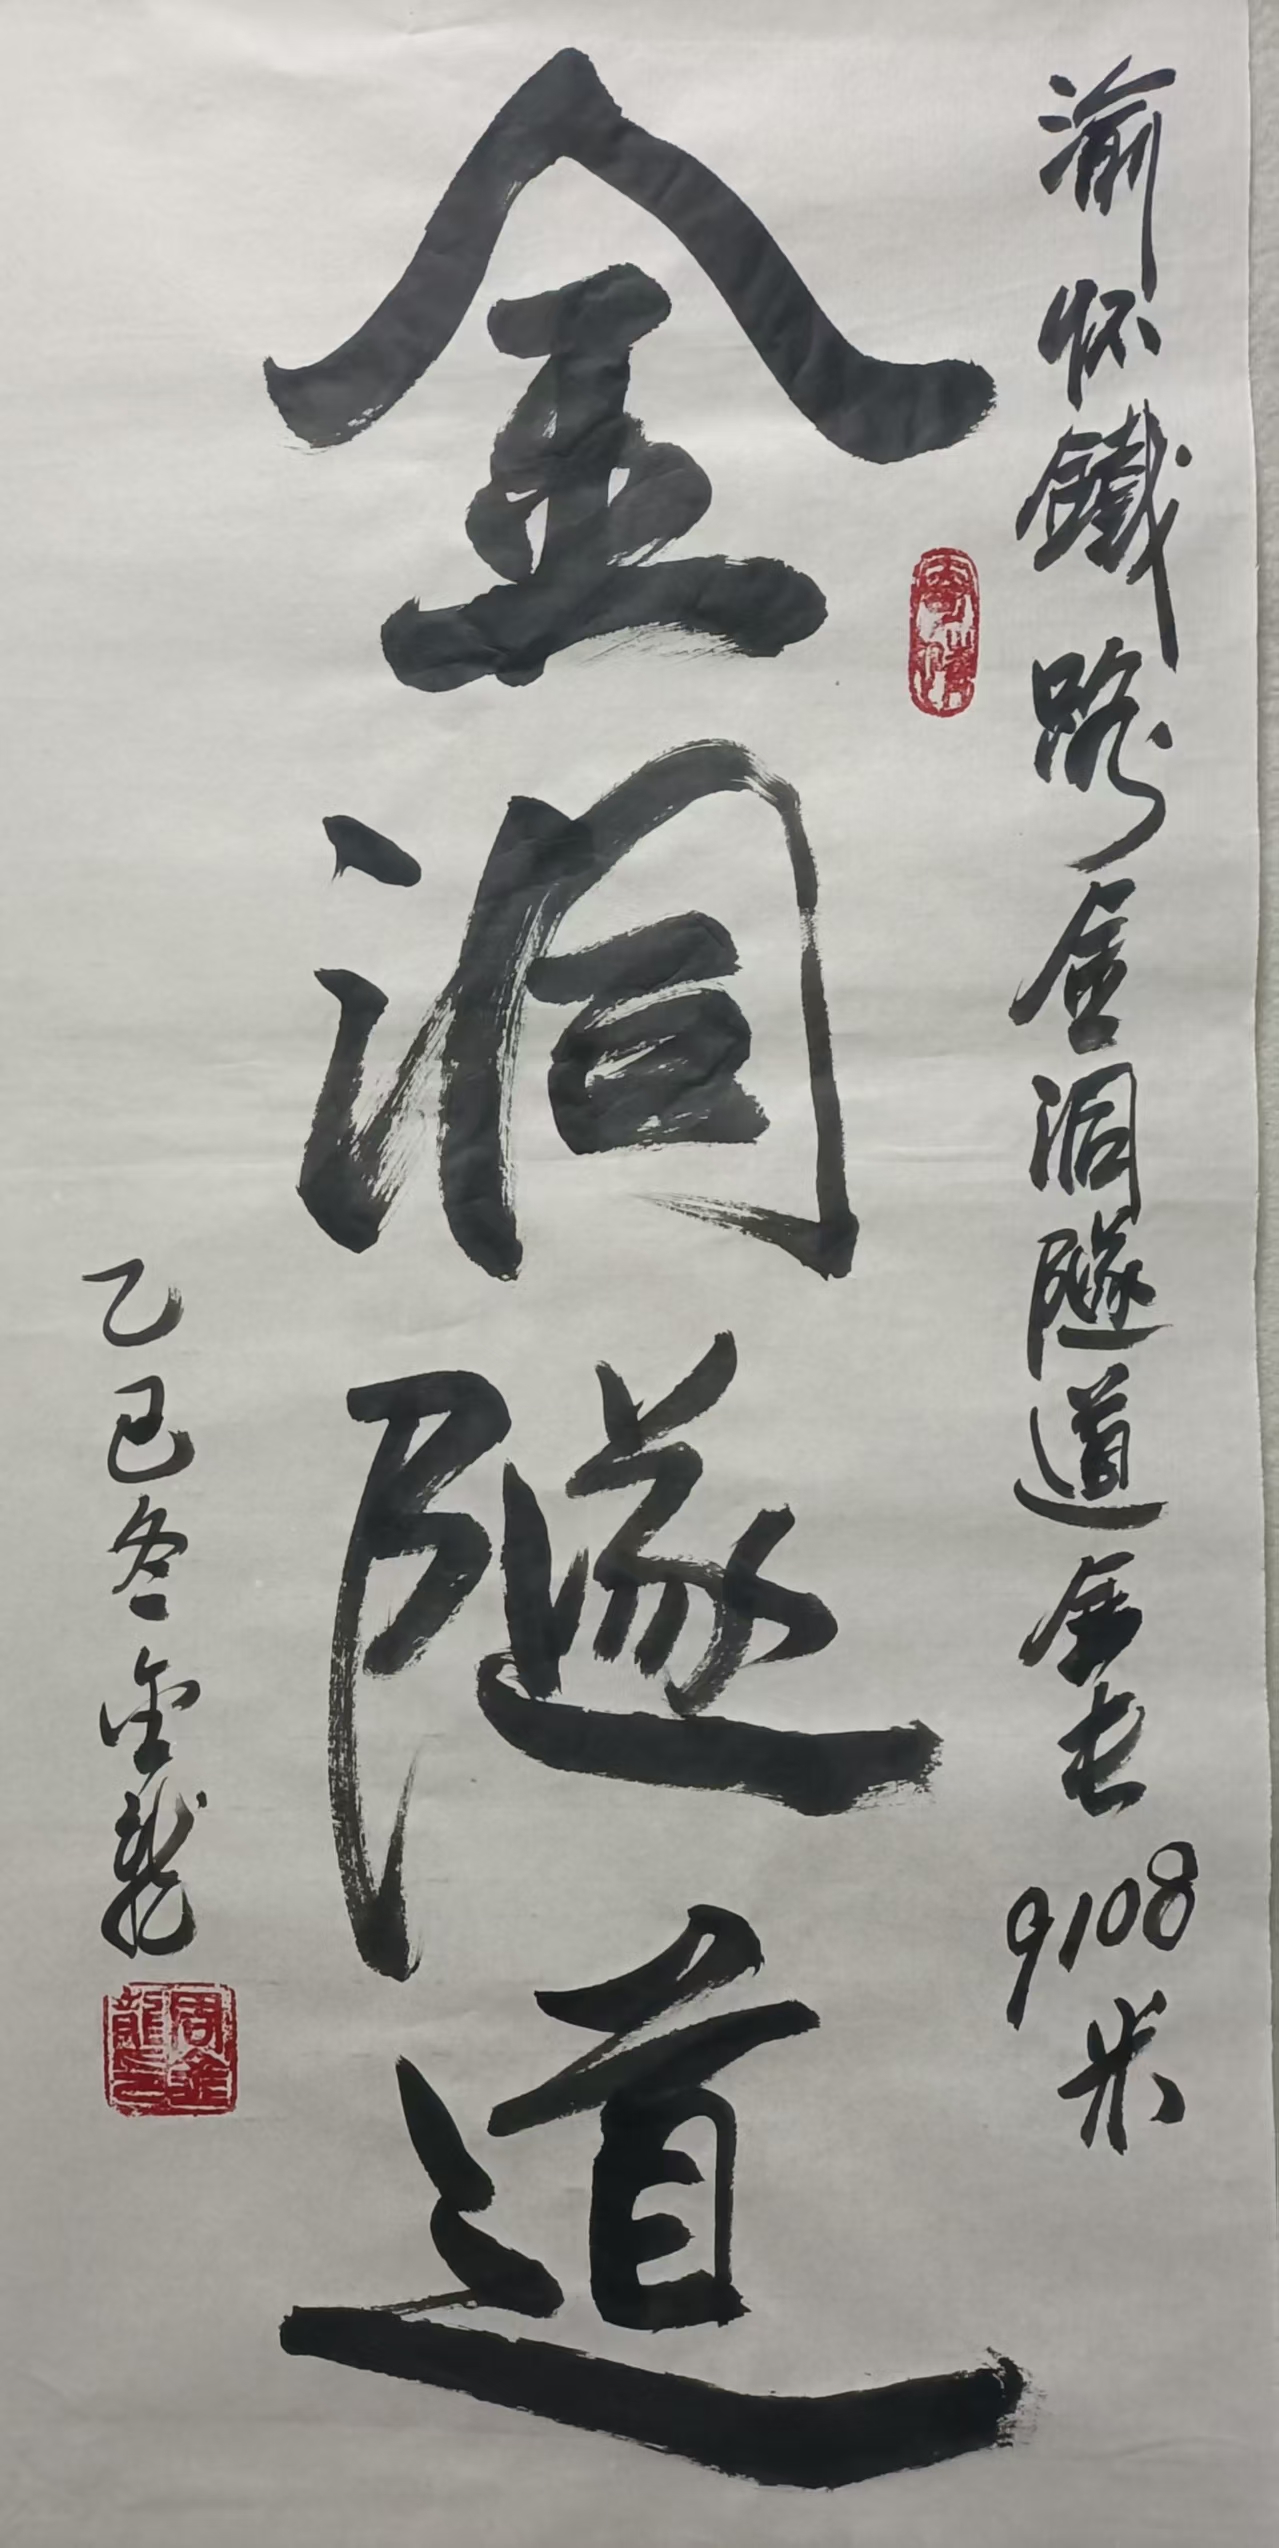 渝怀鐵路金洞隧道全长9108米
金洞隧道
乙巳冬金龍
周金龍印